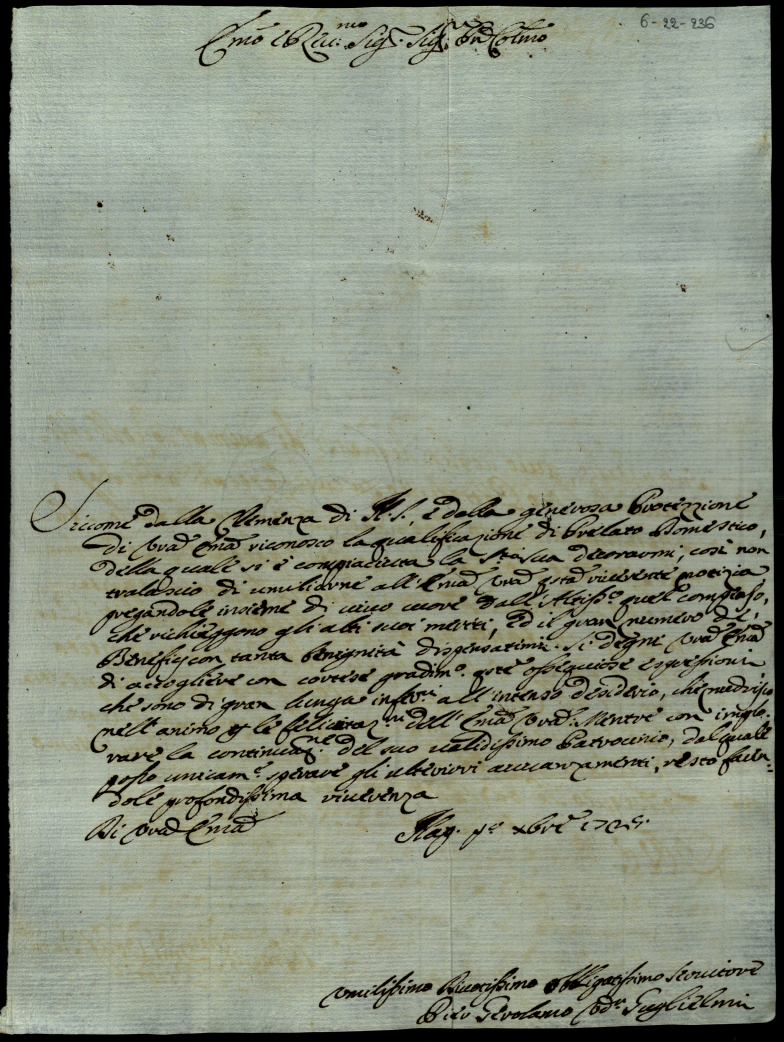 6-22-236
Emo e Rev.mo Sig.r Sig.r Pñe Colmo
Siccome dalla Clemenza di N. S., e dalla generosa Protezzione
di Vrã Emã riconosco la qualificazione di Prelato Domestico,
della quale si è compiaciuta la Stessa decorarmi, così non
tralascio di umiliarne all' Emã Vrã questã riverente notizia
pregandole insieme di vivo cuore dall' Altiss.o quel compenso,
che richieggono gli alti suoi meriti, ed il gran numero de'
Beneficj con tanta benignità dispensatimi. Si degni Vrã Emã
di accogliere con cortese gradim.o queste ossequiose espressioni
che sono di gran lunga inferri all' intenso desiderio, che nudrisco
nell' animo p le felicitazni dell' Emã Vrã. Mentre con implo-
rare la continuaz.ne del suo validissimo Patrocinio, dal quale
posso unicam.e sperare gli ulteriori avvanzamenti, resto facen=
dole profondissima riverenza
Di Vrã Emã
Xbre
Umilissimo Divotissimo Obbligatissimo Servitore
Pier Gerolamo Guglielmi